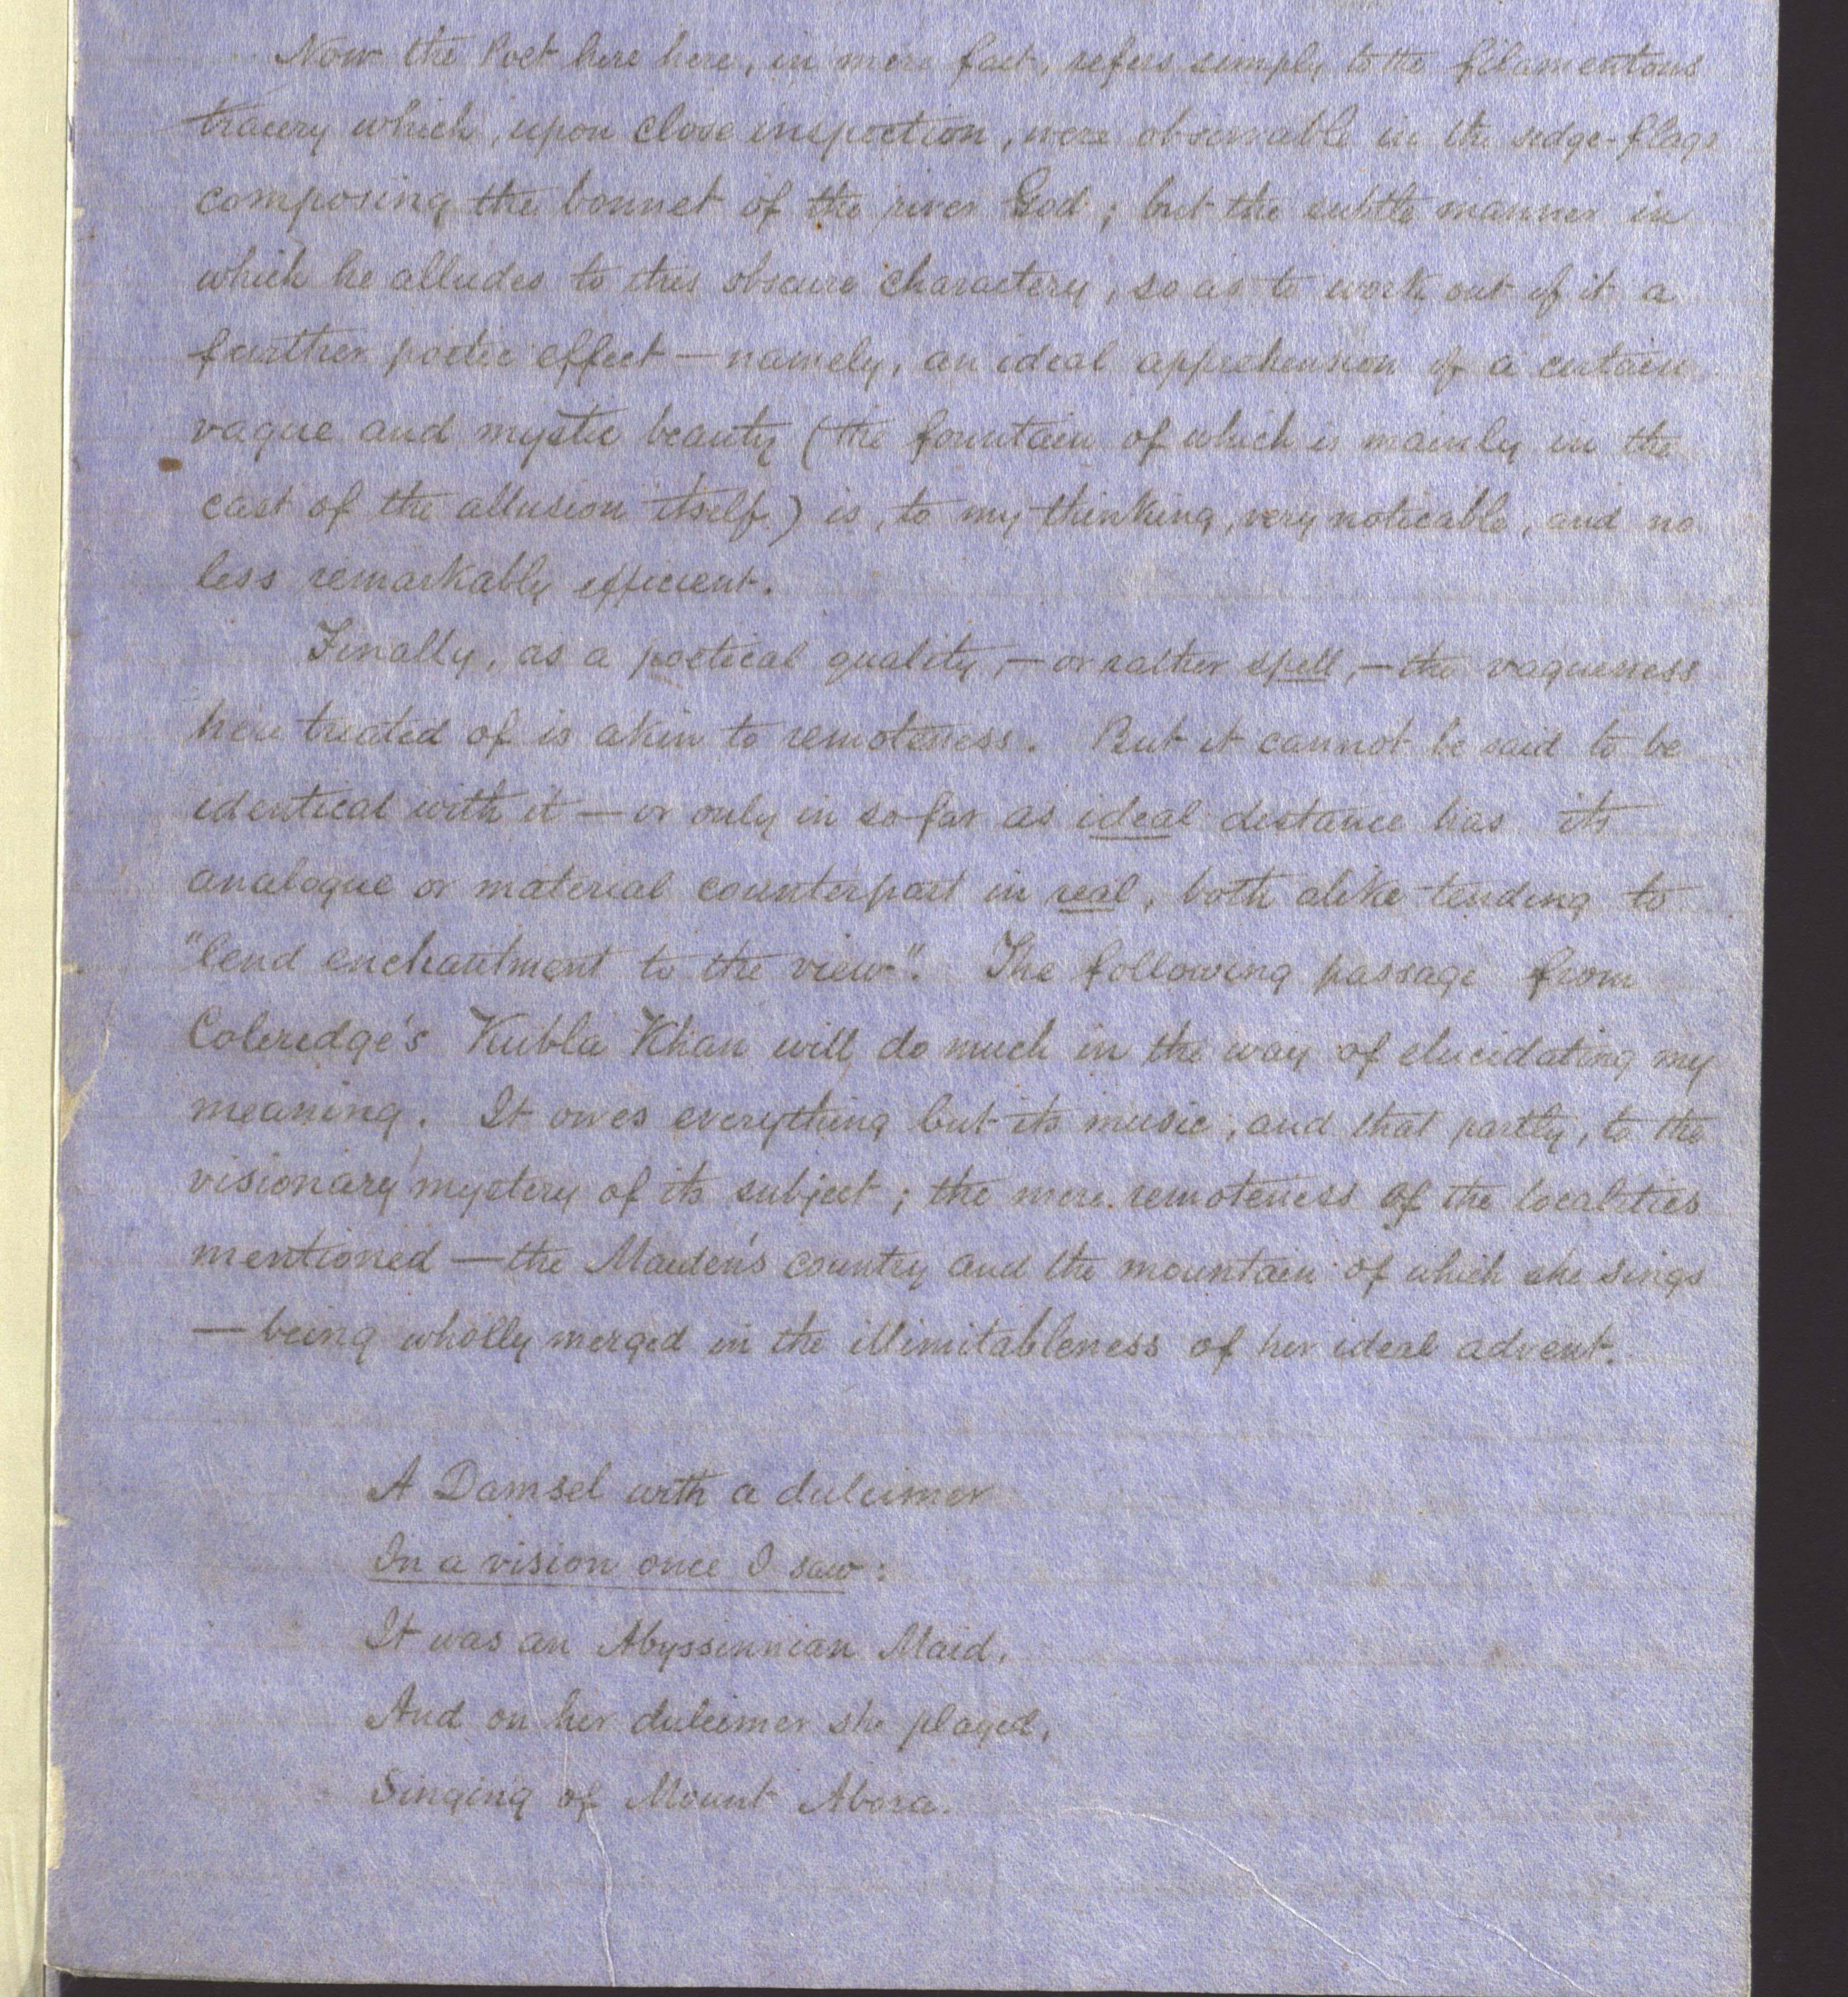 Now the Poet here here, in mere fact, refers simply to the filamentous
tracery which, upon close inspection, were observable in the sedge-flags
composing the bonnet of the river God; but the subtle manner in
which he alludes to this obscure charactery, so as to work out of it a
further poetic effect — namely, an ideal apprehension of a certain
vague and mystic beauty (the fountain of which is mainly in the
cast of the allusion itself) is, to my thinking, very noticable, and no
less remarkably efficient.
Finally, as a poetical quality, — or rather spell, — the vagueness
here treated of is akin to remoteness. But it cannot be said to be
identical with it — or only in so far as ideal distance has its
analogue or material counterpart in real, both alike tending to
"lend enchantment to the view". The following passage from
Coleridge's Kubla Khan will do much in the way of elucidating my
meaning. It owes everything but its music, and that partly, to the
visionary mystery of its subject; the mere remoteness of the localities
mentioned — the Maiden's country and the mountain of which she sings
— being wholly merged in the illimitableness of her ideal advent.
A Damsel with a dulcimer
In a vision once I saw:
It was an Abyssinnian Maid,
And on her dulcimer she played,
Singing of Mount Abora.